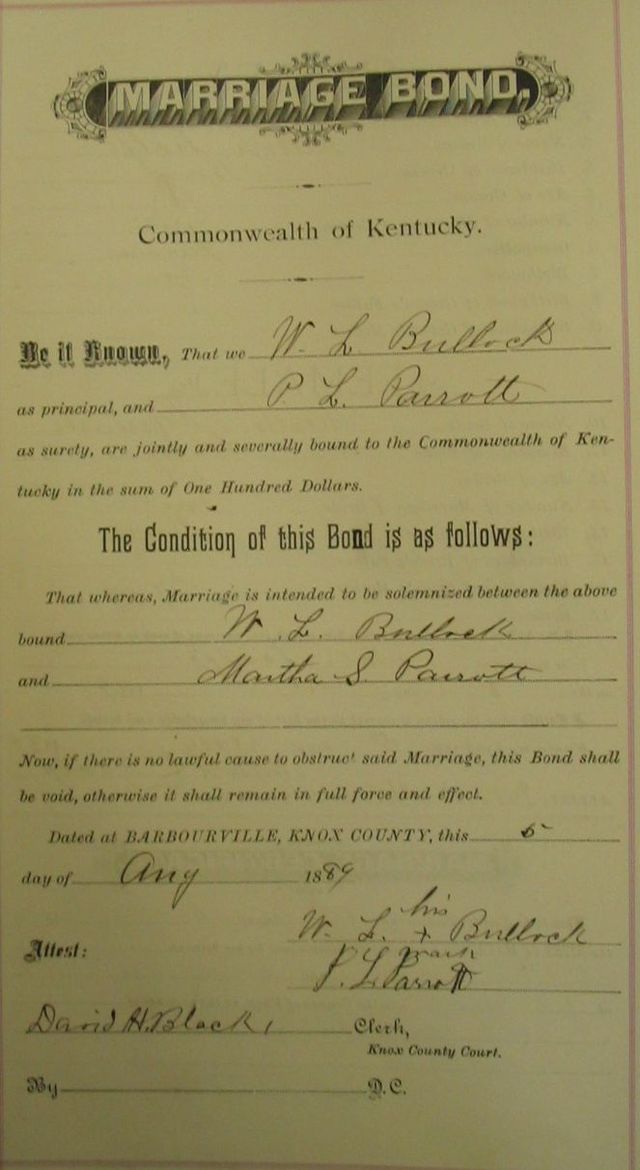 MARRIAGE BOND,
Commonwealth of Kentucky.
Be it Known, That we W. L. Bullock
as principal, and P. L. Parrott
as surety, are jointly and severally bound to the Commonwealth of Ken-
tucky in the sum of One Hundred Dollars.
The Condition of this Bond is as follows:
That whereas, Marriage is intended to be solemnized between the above
bound W. L. Bullock
and Martha S. Parrott
Now, if there is no lawful cause to obstruct said Marriage, this Bond shall
be void, otherwise it shall remain in full force and effect.
Dated at BARBOURVILLE, KNOX COUNTY, this 5
day of Aug 1889
his
W. L. + Bullock
mark
Attest:
P. L. Parrott
David H. Black, Clerk,
Knox County Court.
By D.C.